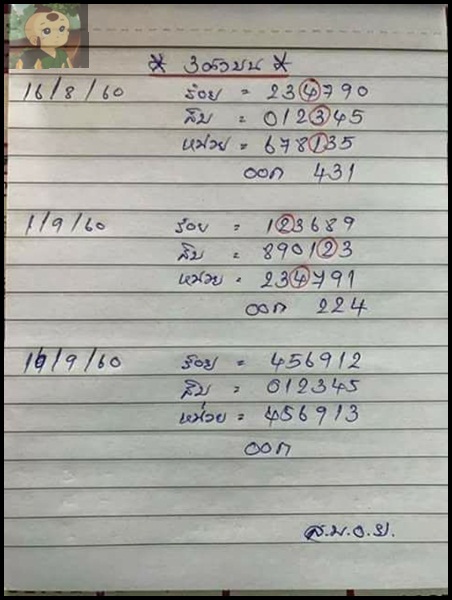 * 3ตัวบน *
16/8/60 ร้อย = 234790
สิบ = 012345
หน่วย = 678135
ออก 431
1/9/60 ร้อย = 123689
สิบ = 890123
หน่วย = 234791
ออก 224
16/9/60 ร้อย = 456912
สิบ = 012345
หน่วย = 456913
ออก
ส.ม.อ.ย.